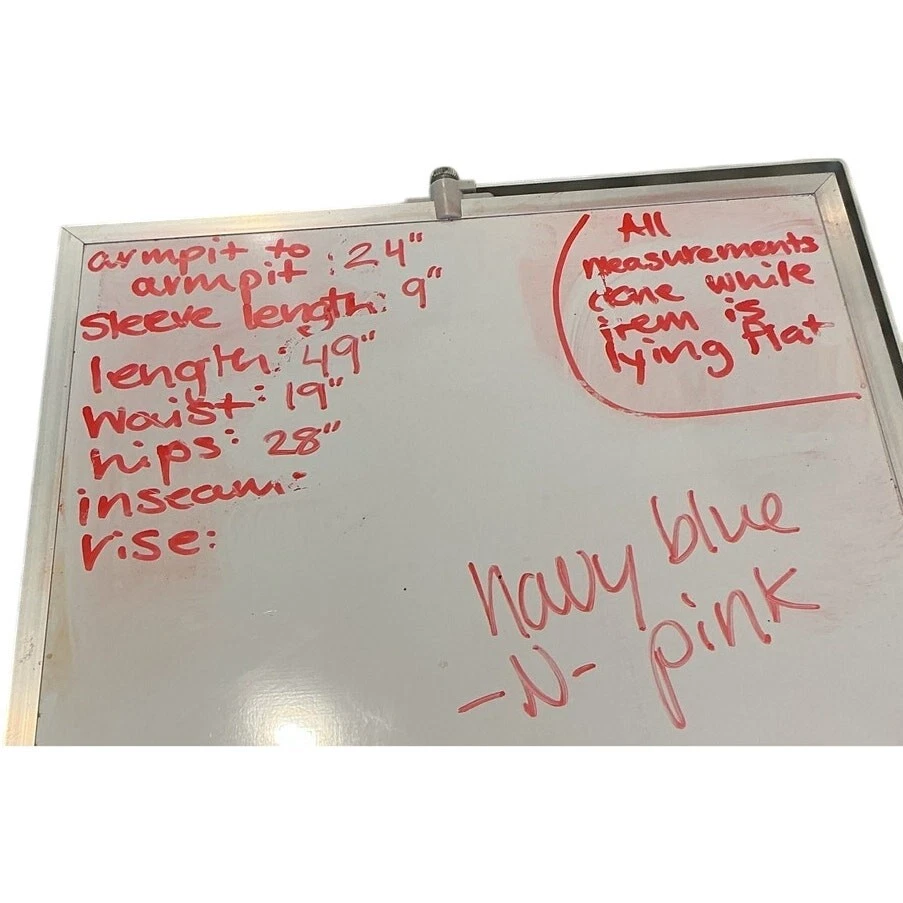 armpit to
armpit : 24"
sleeve length: 9"
length: 49"
waist: 19"
hips: 28"
inseam:
rise:
All
measurements
done while
item is
lying flat
navy blue
-N- pink